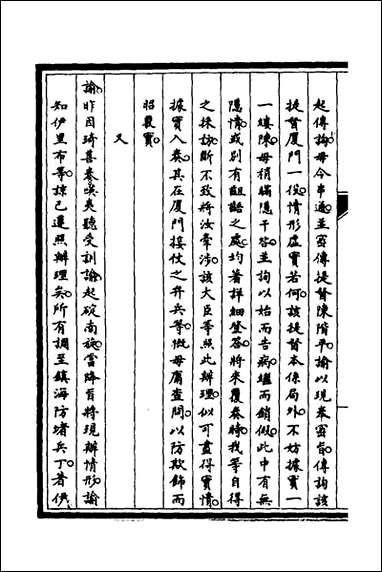 起傳詢毋令串通並密傳提督陳階平諭以現奉密旨傳詢該
提督廈門一役情形虛實若何該提督本係局外不妨據實一
一縷陳毋稍瞞隱干咎並詢以始而告病繼而銷假此中有無
隱情或別有齟齬之處均著詳細登答將來覆奏時我等自得
之採訪斷不致將汝牽涉該大臣等照此辦理似可盡得實情
據實入奏其在廈門接仗之弁兵等概毋庸查問以防欺飾而
昭覈實
又
諭昨因琦善奏噗夷聽受訓諭起碇南旋當降旨將現辦情形諭
知伊里布等諒已遵照辦理矣所有調至鎮海防堵兵丁著伊